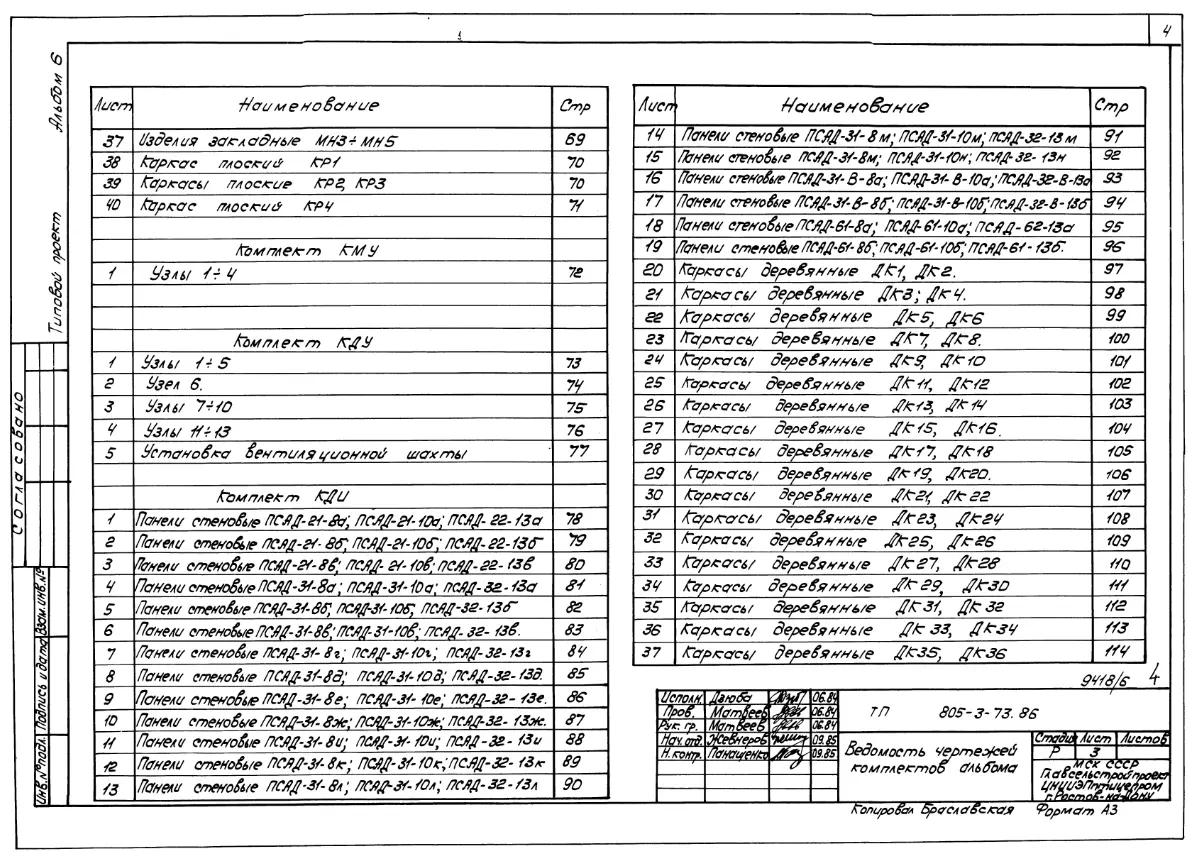 4
Альбом 6
Типовой проект
Согласовано
Взам.инв.№
Подпись и дата
Инв.№подл.
Лист Наименование Стр
37 Изделия закладные МН3÷МН5 69
38 Каркас плоский КР1 70
39 Каркасы плоские КР2, КР3 70
40 Каркас плоский КР4 71
Комплект КМУ
1 Узлы 1÷4 72
Комплект КДУ
1 Узлы 1÷5 73
2 Узел 6. 74
3 Узлы 7÷10 75
4 Узлы 11÷13 76
5 Установка вентиляционной шахты 77
Комплект КДИ
1 Панели стеновые ПСАД-21-8а; ПСАД-21-10а; ПСАД-22-13а 78
2 Панели стеновые ПСАД-21-8б; ПСАД-21-10б; ПСАД-22-13б 79
3 Панели стеновые ПСАД-21-8в; ПСАД-21-10в; ПСАД-22-13в 80
4 Панели стеновые ПСАД-31-8а; ПСАД-31-10а; ПСАД-32-13а 81
5 Панели стеновые ПСАД-31-8б; ПСАД-31-10б; ПСАД-32-13б 82
6 Панели стеновые ПСАД-31-8в; ПСАД-31-10в; ПСАД-32-13в. 83
7 Панели стеновые ПСАД-31-8г; ПСАД-31-10г; ПСАД-32-13г 84
8 Панели стеновые ПСАД-31-8д; ПСАД-31-10д; ПСАД-32-13д. 85
9 Панели стеновые ПСАД-31-8е; ПСАД-31-10е; ПСАД-32-13е. 86
10 Панели стеновые ПСАД-31-8ж; ПСАД-31-10ж; ПСАД-32-13ж. 87
11 Панели стеновые ПСАД-31-8и; ПСАД-31-10и; ПСАД-32-13и 88
12 Панели стеновые ПСАД-31-8к; ПСАД-31-10к; ПСАД-32-13к 89
13 Панели стеновые ПСАД-31-8л; ПСАД-31-10л; ПСАД-32-13л 90
Лист Наименование Стр
14 Панели стеновые ПСАД-31-8м; ПСАД-31-10м; ПСАД-32-13м 91
15 Панели стеновые ПСАД-31-8м; ПСАД-31-10н; ПСАД-32-13н 92
16 Панели стеновые ПСАД-31-В-8а; ПСАД-31-В-10а; ПСАД-32-В-13а 93
17 Панели стеновые ПСАД-31-В-8б; ПСАД-31-В-10б; ПСАД-32-В-13б 94
18 Панели стеновые ПСАД-61-8а; ПСАД-61-10а; ПСАД-62-13а 95
19 Панели стеновые ПСАД-61-8б; ПСАД-61-10б; ПСАД-61-13б. 96
20 Каркасы деревянные ДК1, ДК2. 97
21 Каркасы деревянные ДК3; ДК4. 98
22 Каркасы деревянные ДК5, ДК6 99
23 Каркасы деревянные ДК7, ДК8. 100
24 Каркасы деревянные ДК9, ДК10 101
25 Каркасы деревянные ДК11, ДК12 102
26 Каркасы деревянные ДК13, ДК14 103
27 Каркасы деревянные ДК15, ДК16. 104
28 Каркасы деревянные ДК17, ДК18 105
29 Каркасы деревянные ДК19, ДК20. 106
30 Каркасы деревянные ДК21, ДК22 107
31 Каркасы деревянные ДК23, ДК24 108
32 Каркасы деревянные ДК25, ДК26 109
33 Каркасы деревянные ДК27, ДК28 110
34 Каркасы деревянные ДК29, ДК30 111
35 Каркасы деревянные ДК31, ДК32 112
36 Каркасы деревянные ДК33, ДК34 113
37 Каркасы деревянные ДК35, ДК36 114
9418/6 4
Исполн Дзюба 06.84
Пров. Матвеев 06.84
Рук. гр. Матвеев 06.84
Нач. отд. Жевнеров 09.85
Н.контр. Панащенко 09.85
ТП 805-3-73.86
Ведомость чертежей
комплектов альбома
Стадия Лист Листов
Р 3
МСХ СССР
Главсельстройпроект
ЦНИИЭПптицепром
г.Ростов-на-Дону
Копировал Браславская Формат А3